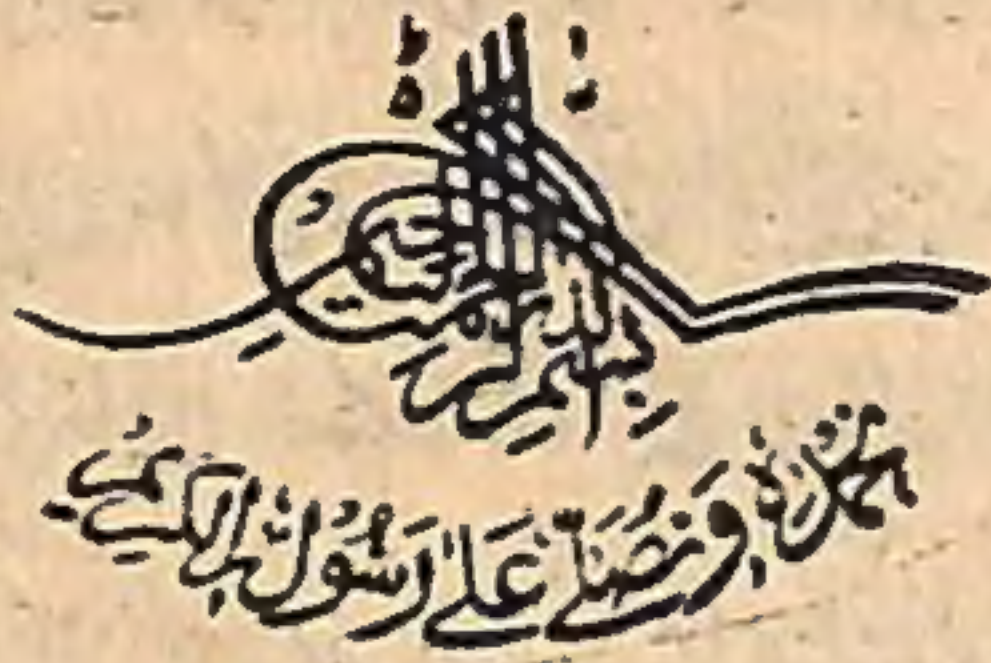 بِسْمِ اللهِ الرَّحْمٰنِ الرَّحِيْمِ
نَحْمَدُهٗ وَنُصَلِّيْ عَلٰى رَسُوْلِهِ الْكَرِيْمِ